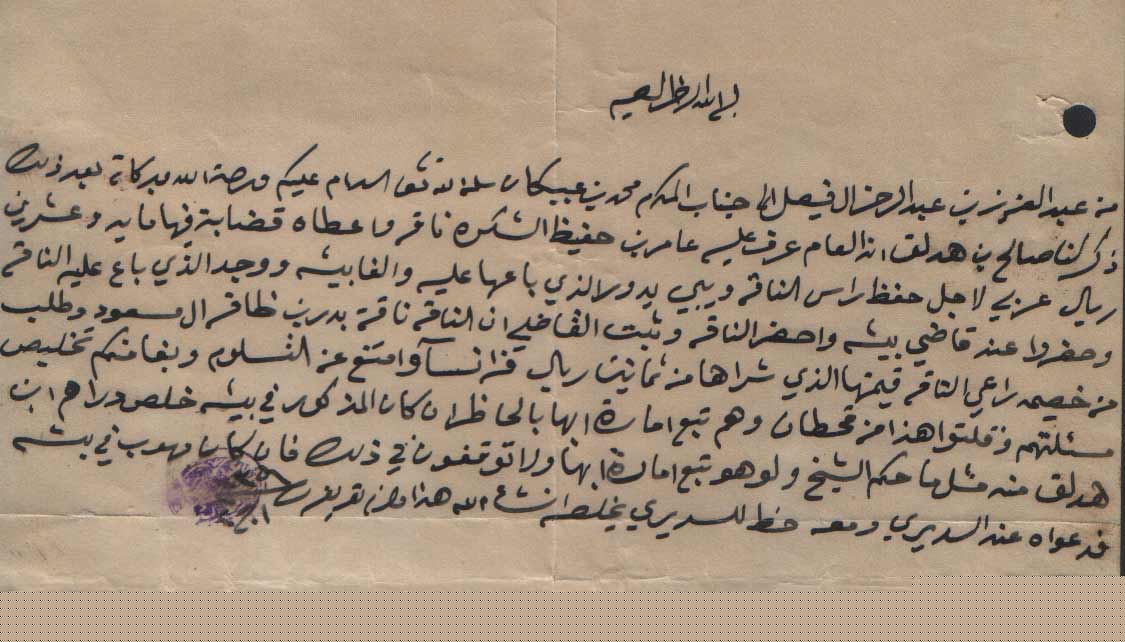 بسم الله الرحمن الرحيم
من عبد العزيز بن عبد الرحمن ال فيصل الى جناب المكرم محمد بن عبيكان سلمه الله تعالى السلام عليكم ورحمة الله وبركاته بعد ذلك
ذكر لنا صالح بن هدلق ان العام عرف عليه عامر بن حفيظ الشكره ناقه واعطاه قضابة فيها مايه وعشرين
ريال عربي لاجل حفظ راس الناقه ويبي يدور الذي باعها عليه والفا بيشه ووجد الذي باع عليه الناقه
وحضروا عند قاضي بيشه واحضر الناقه وثبت القاضي ان الناقه ناقة بدر بن ظافر ال مسعود وطلب
من خصيمه راعي الناقه قيمتها الذي شراها من ثمانين ريال فرانسا وامتنع عن التسلوم وبغا منكم تخليص
مسئلتهم وقلتوا هذا من قحطان وهم تبع امارة ابها بالحاظر ان كان المذكور في بيشه خلصو دراهم ابن
هدلق منه مثل ما حكم الشيخ ولو هو تبع امارة ابها ولا توقفون في ذلك فان كان هوب في بيشه
فدعواه عند السديري ومعه خط للسديري يخلصه انشاء الله هذا ما لزم تعريفه